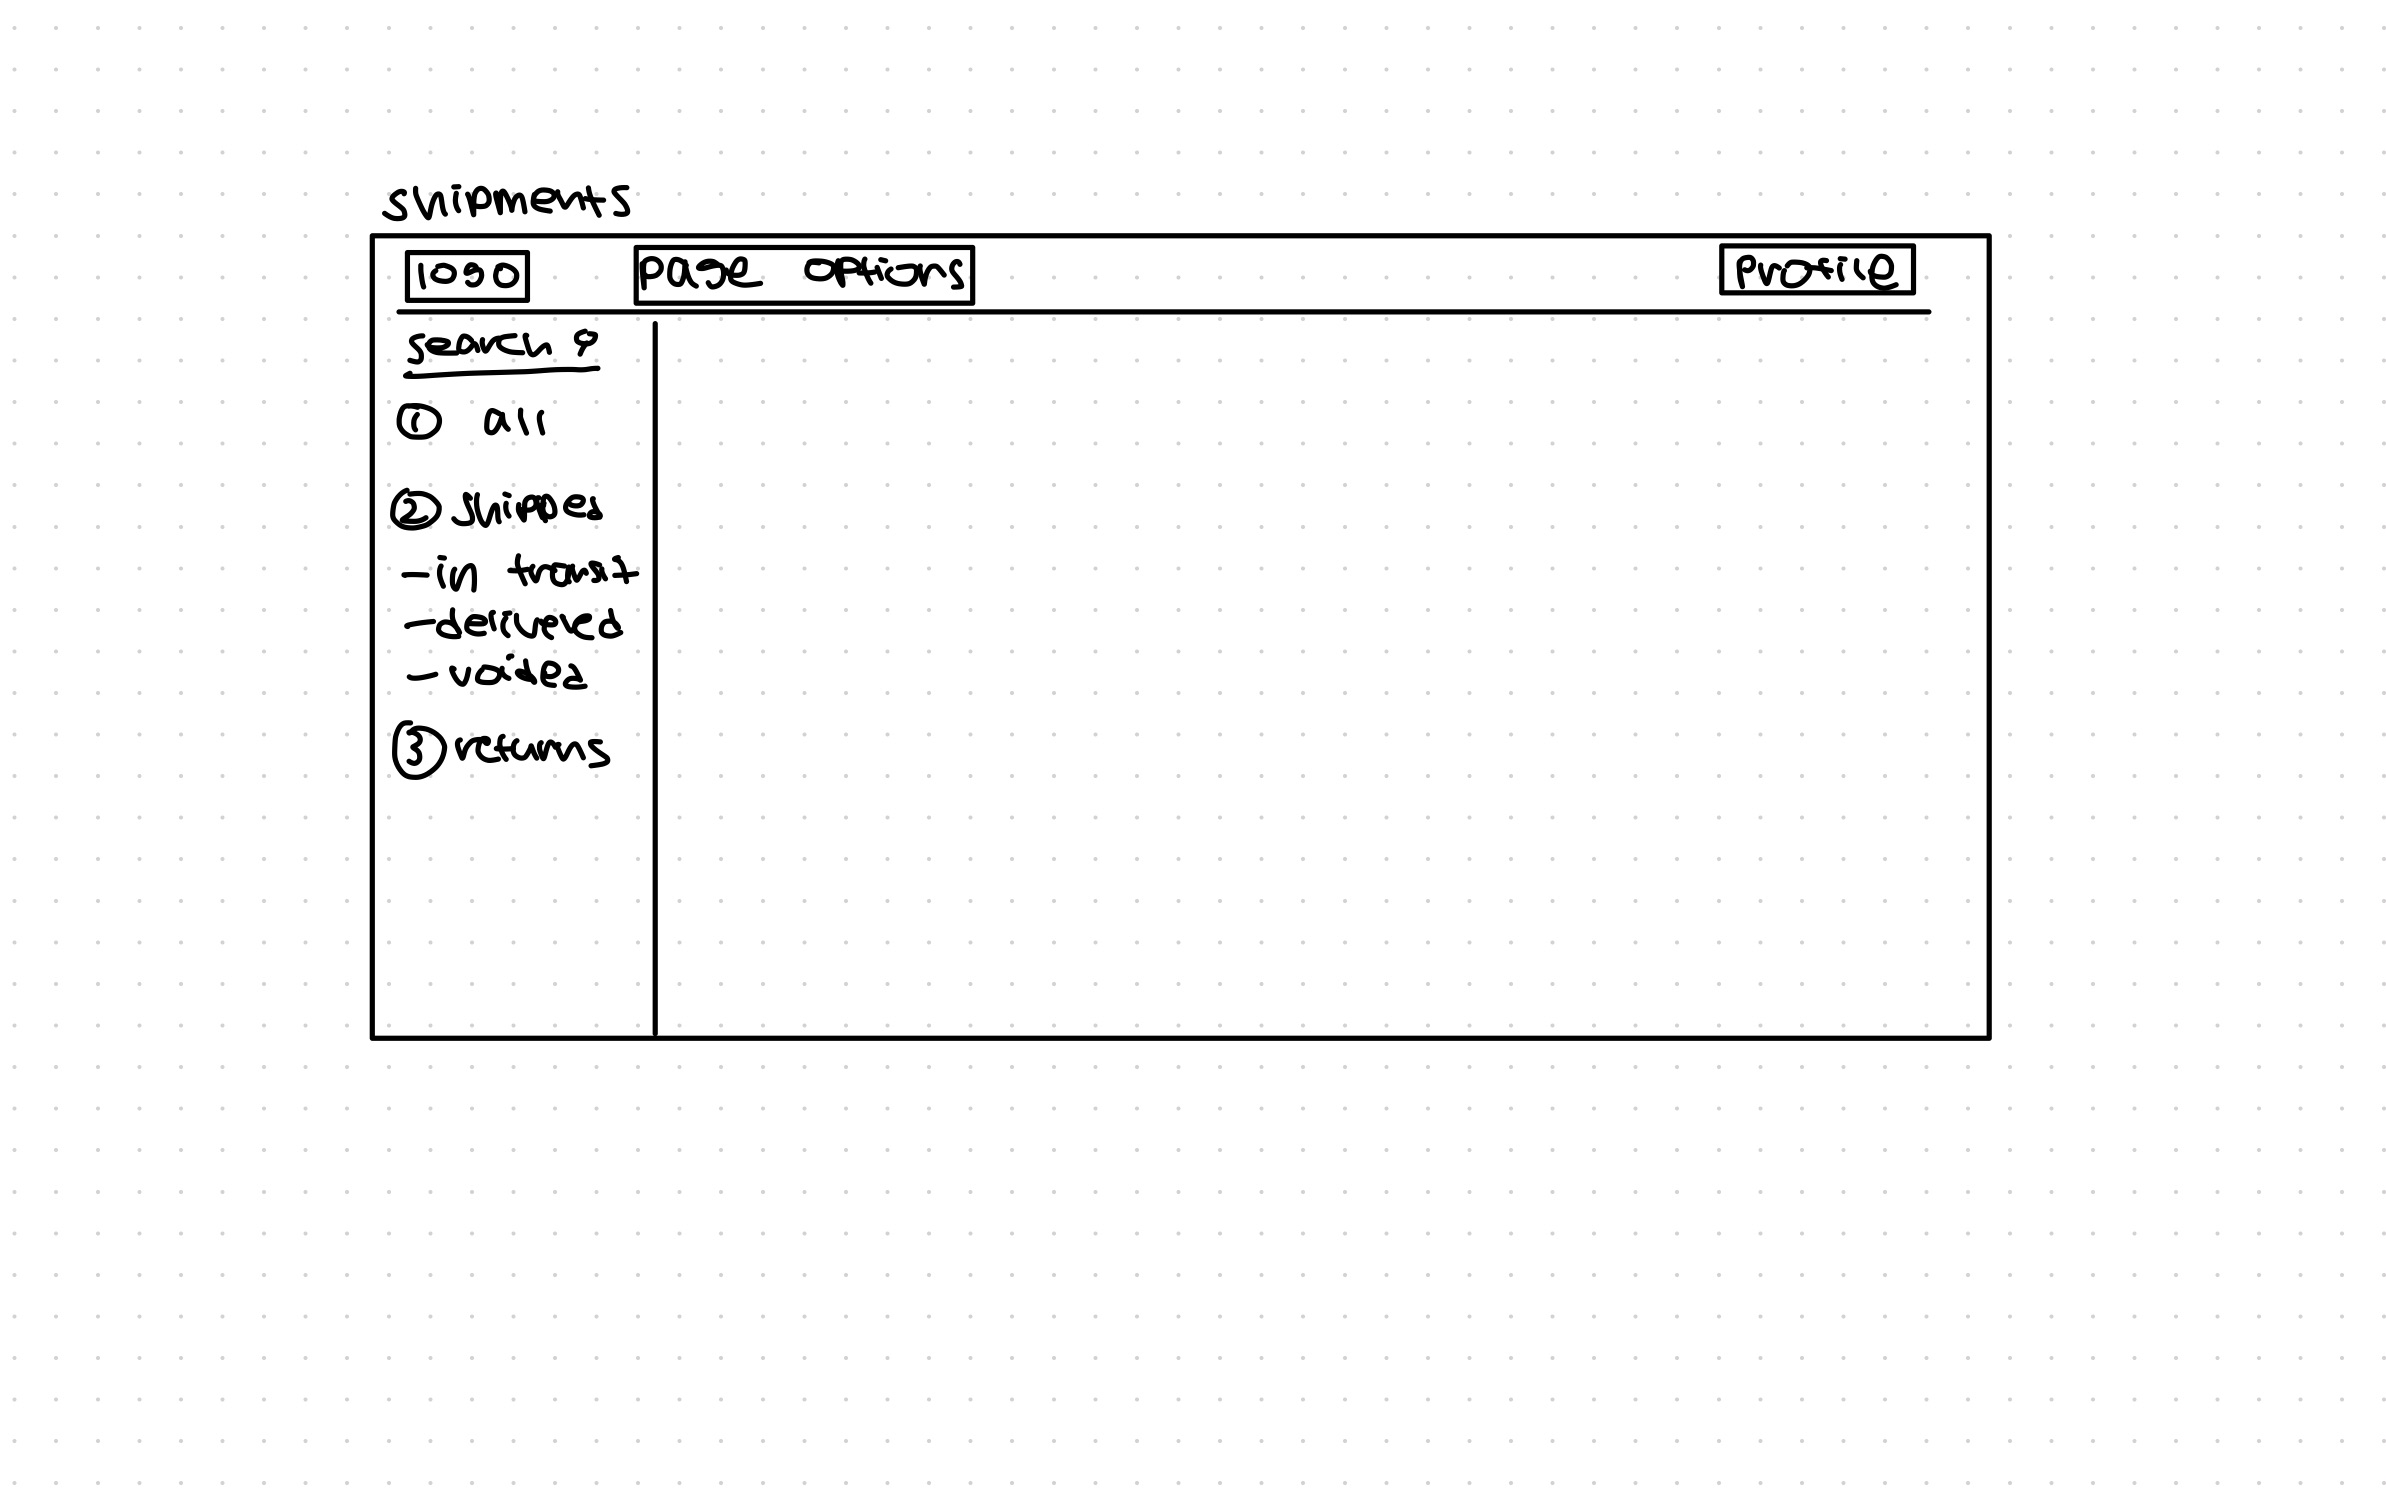 shipments
logo
page options
profile
search
① all
② shipped
- in transit
- delivered
- voided
③ returns